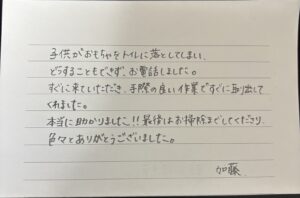 子供がおもちゃをトイレに落としてしまい、
どうすることもできず、お電話しました。
すぐに来ていただき、手際の良い作業ですぐに取り出して
くれました。
本当に助かりました!!最後はお掃除までしてくださり、
色々とありがとうございました。
加藤